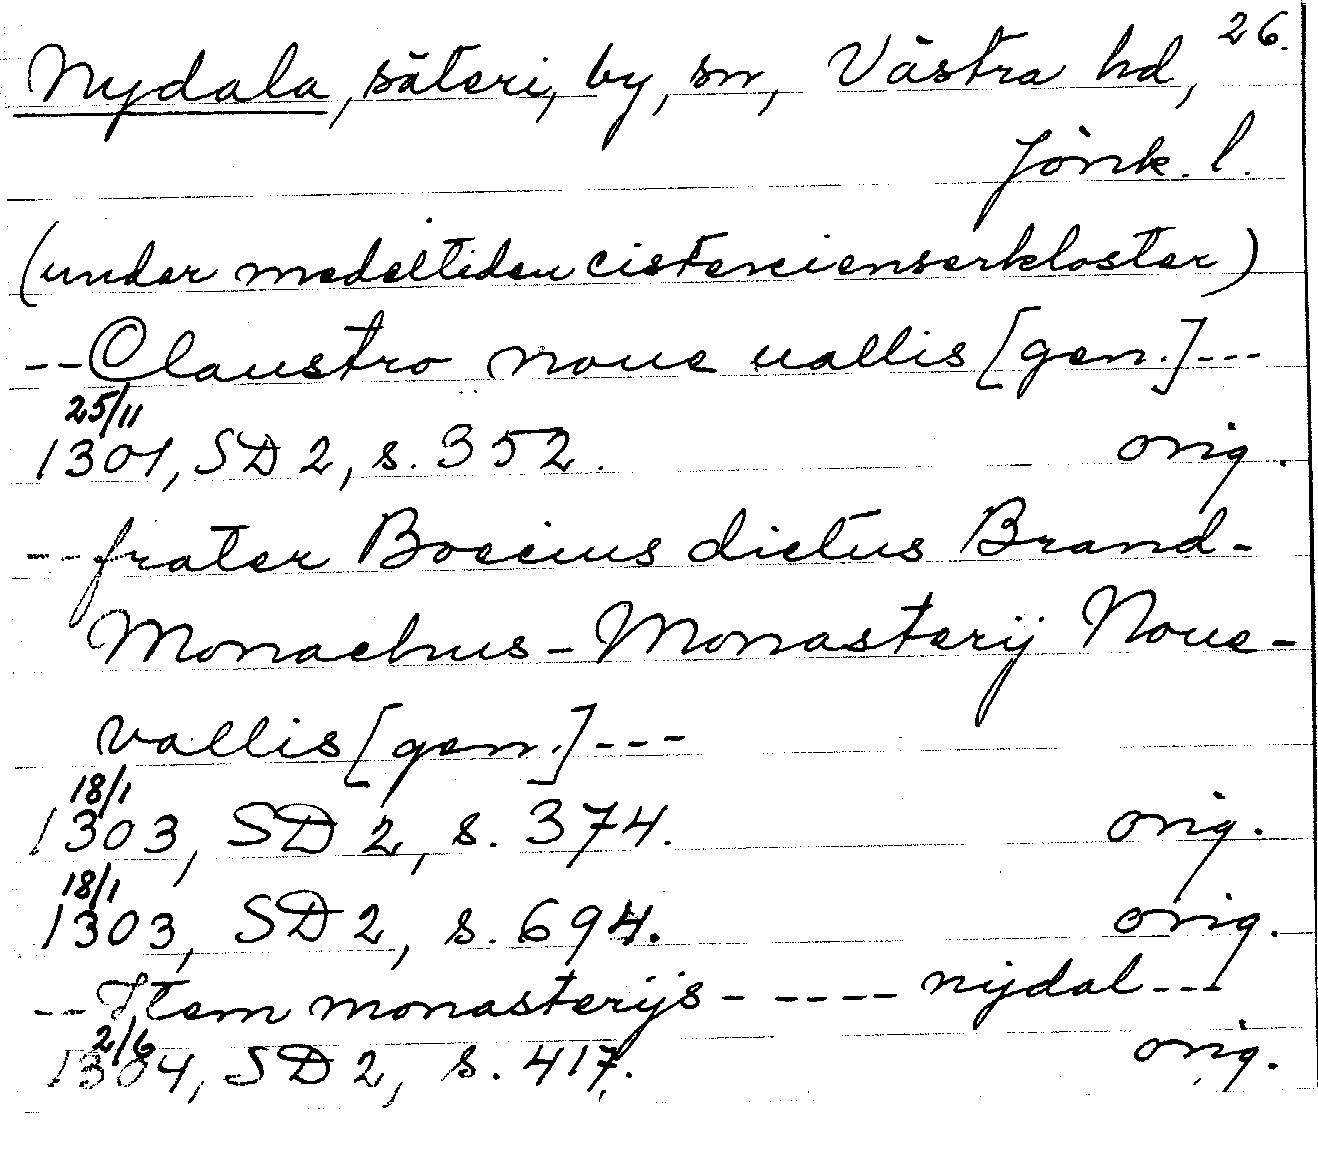 26.
Nydala, säteri, by, sn, Västra hd,
Jönk. l.
(under medeltiden cistercienserkloster)
--Claustro noue uallis [gen.]---
25/11
1301, SD 2, s. 352. orig.
--frater Boecius dictus Brand-
Monachus-Monasterij Noue-
vallis [gen.]---
18/1
1303, SD 2, s. 374. orig.
18/1
1303, SD 2, s. 694. orig.
--Item monasterijs - ---- nijdal---
2/6
1304, SD 2, s. 417. orig.